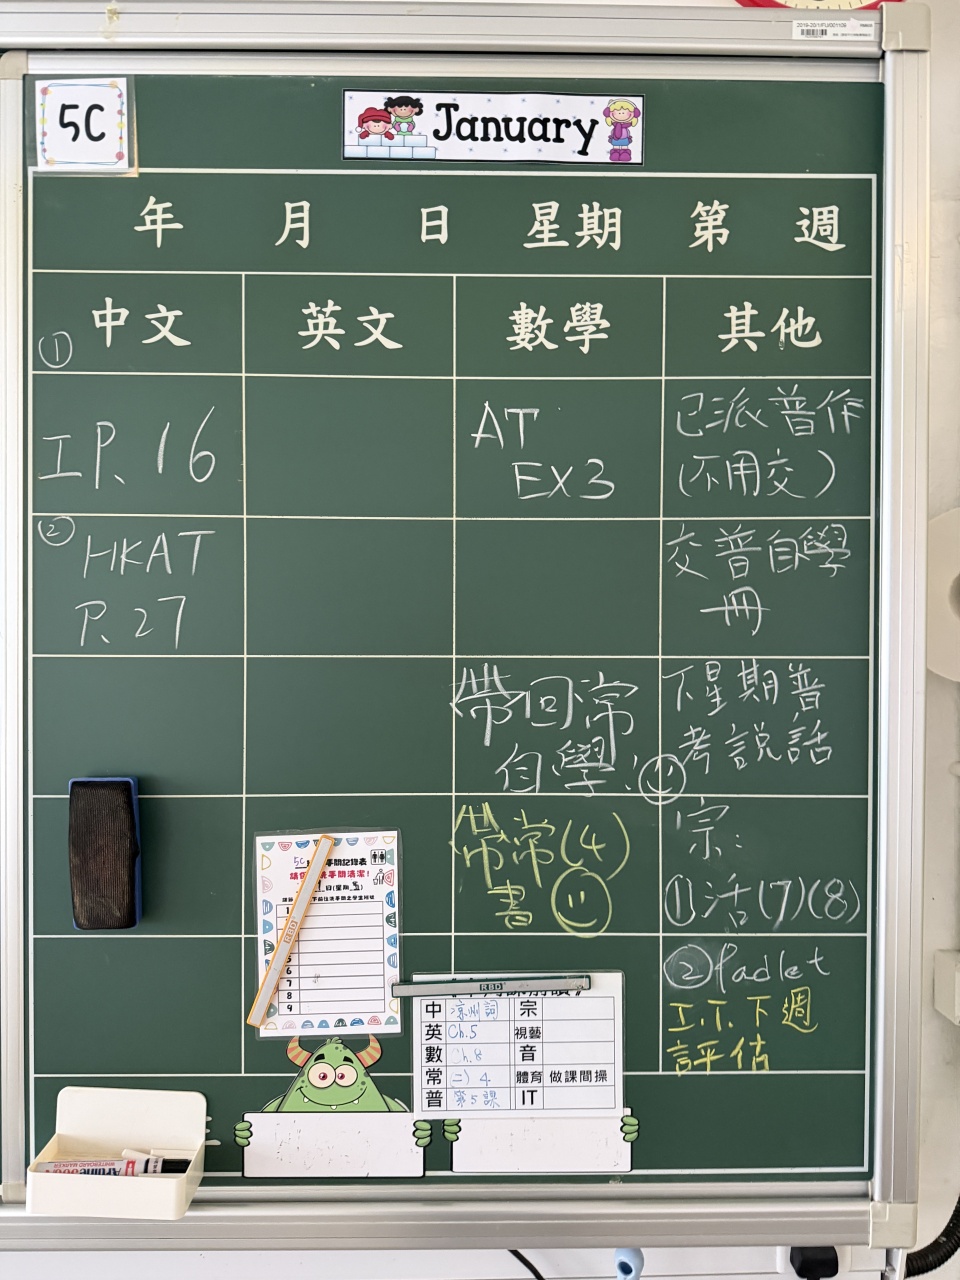 5C
January
年 月 日 星期 第 週
中文 英文 數學 其他
①
工P.16
AT
EX3
已派普作
(不用交)
②
HKAT
P.27
交普自學
冊
帶回常
自學!
下星期普
考說話
帶常(4)
書
宗:
①活(7)(8)
②Padlet
I.T.下週
評估
5C
1
6
7
8
9
RBD
RBD
中 涼州詞 宗
英 Ch.5 視藝
數 Ch.8 音
常 二)4 體育 做課間操
普 第5課 IT
Artline
WHITEBOARD MARKER